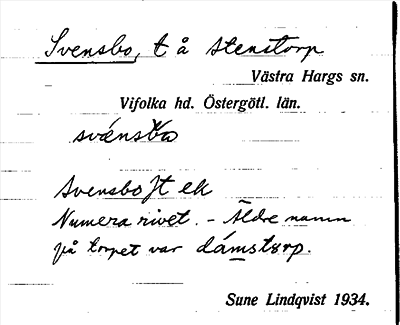 Svensbo, t å Stenstorp
Västra Hargs sn.
Vifolka hd. Östergötl. län.
svänsbo
Svensbo ek
Numera rivet. - Äldre namn
på torpet var dámstorp.
Sune Lindqvist 1934.